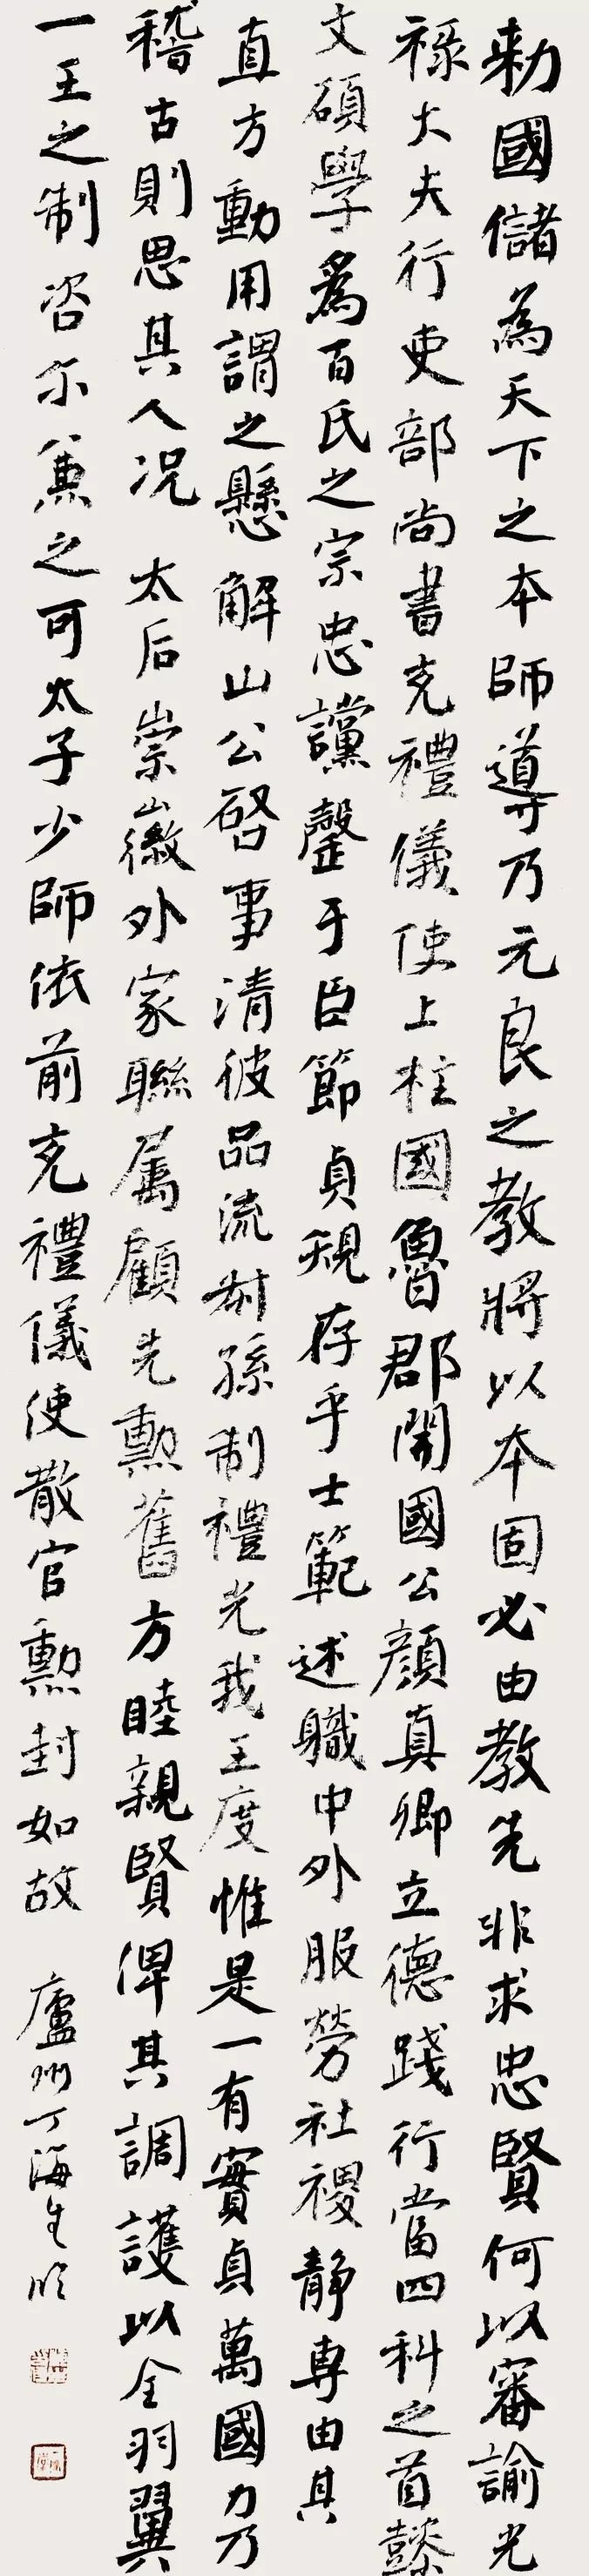 勅國儲為天下之本師導乃元良之教將以本固必由教先非求忠賢何以審諭光
祿大夫行吏部尚書充禮儀使上柱國魯郡開國公顏真卿立德踐行當四科之首懿
文碩學為百氏之宗忠讜罄于臣節貞規存乎士範述職中外服勞社稷靜專由其
直方動用謂之懸解山公啓事清彼品流叔孫制禮光我王度惟是一有實貞萬國力乃
稽古則思其人況太后崇徽外家聯属顧先勳舊方睦親賢俾其調護以全羽翼
一王之制咨尔兼之可太子少師依前充禮儀使散官勳封如故 廬州丁海生臨